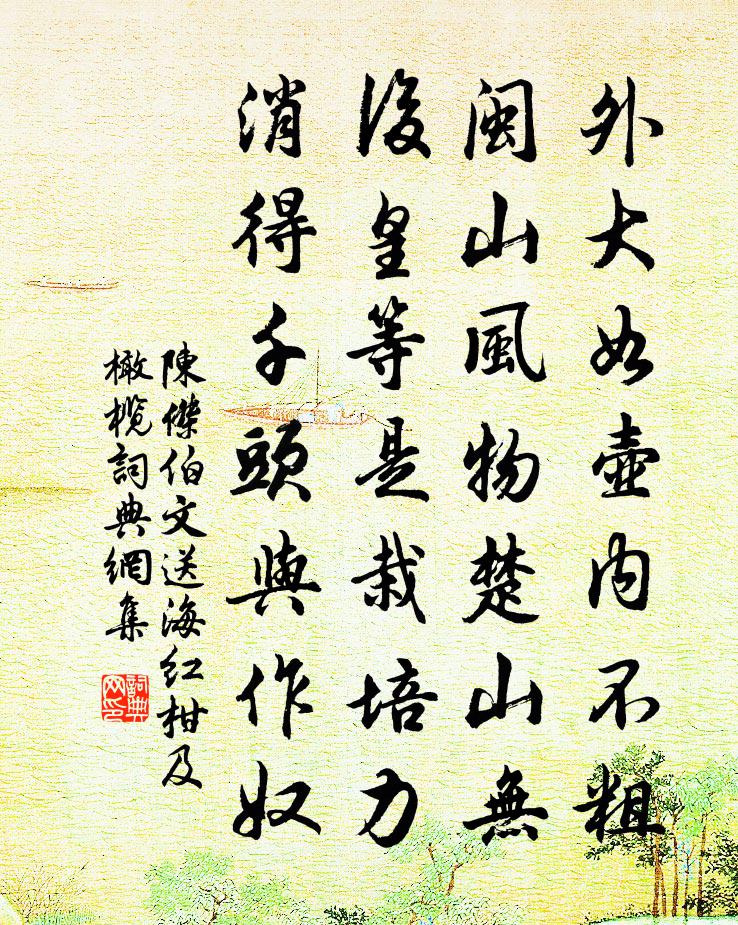 外大如壺内不粗
閩山風物楚山無
後皇等是栽培力
消得千頭與作奴
陳傑伯文送海红柑及
橄榄詞典網集
詞典
网印